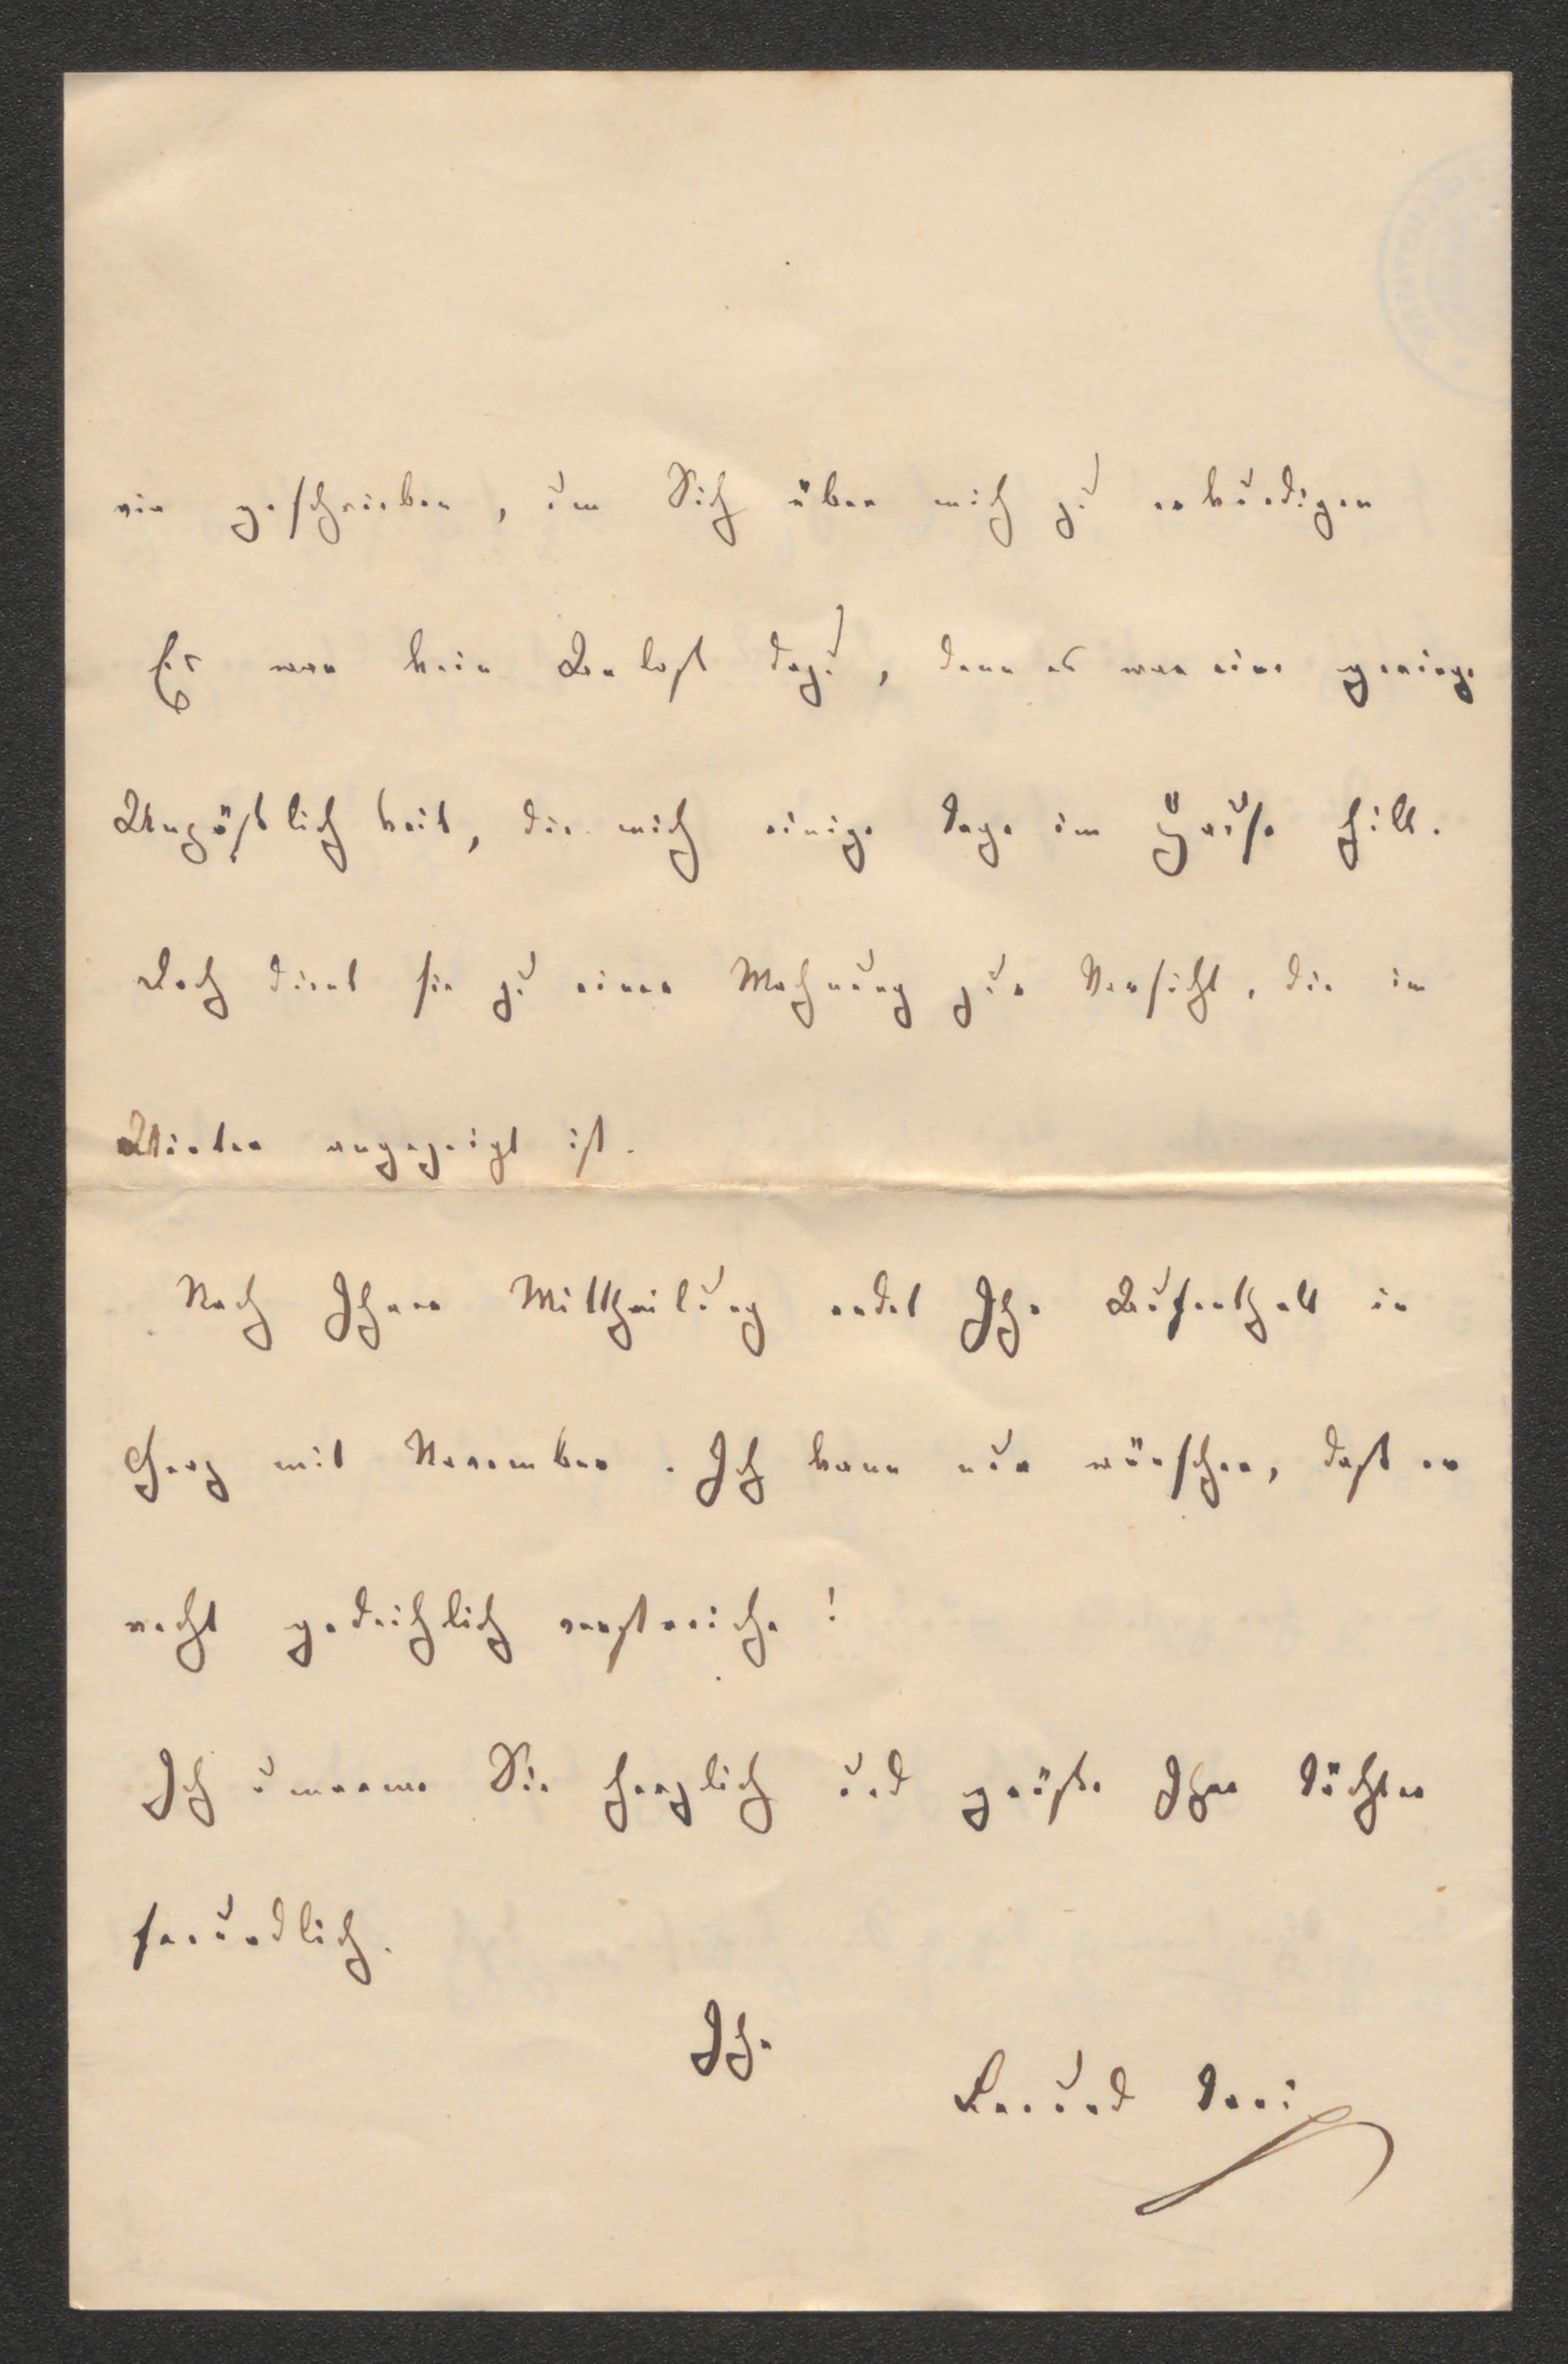 ein geschrieben, um Sich über mich zu erkundigen
Es war kein Anlaß dazu, denn es war eine geringe
Unpäßlichkeit, die mich einige Tage im Hause hielt.
Doch dient sie zu einer Mahnung zur Vorsicht, die im
Winter angezeigt ist.
Nach Ihrer Mittheilung endet Ihr Aufenthalt in
mit November. Ich kann nur wünschen, daß er
recht gedeihlich verstreiche!
Ich umarme Sie herzlich und grüße Ihre Töchter
freundlich.
Ihr
Freund